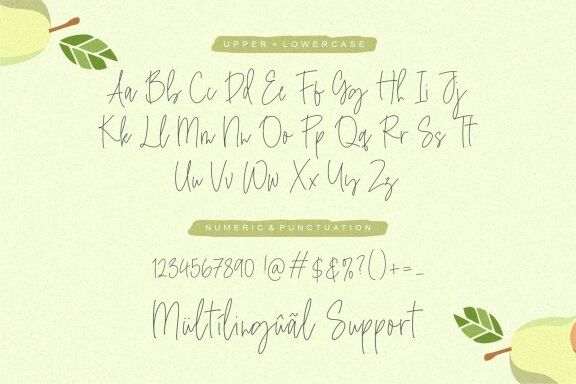 UPPER + LOWERCASE
Aa Bb Cc Dd Ee Ff Gg Hh Ii Jj
Kk Ll Mm Nn Oo Pp Qq Rr Ss Tt
Uu Vv Ww Xx Yy Zz
NUMERIC & PUNCTUATION
1234567890 !@#$&%?()+=_
Mültilingûãl Support